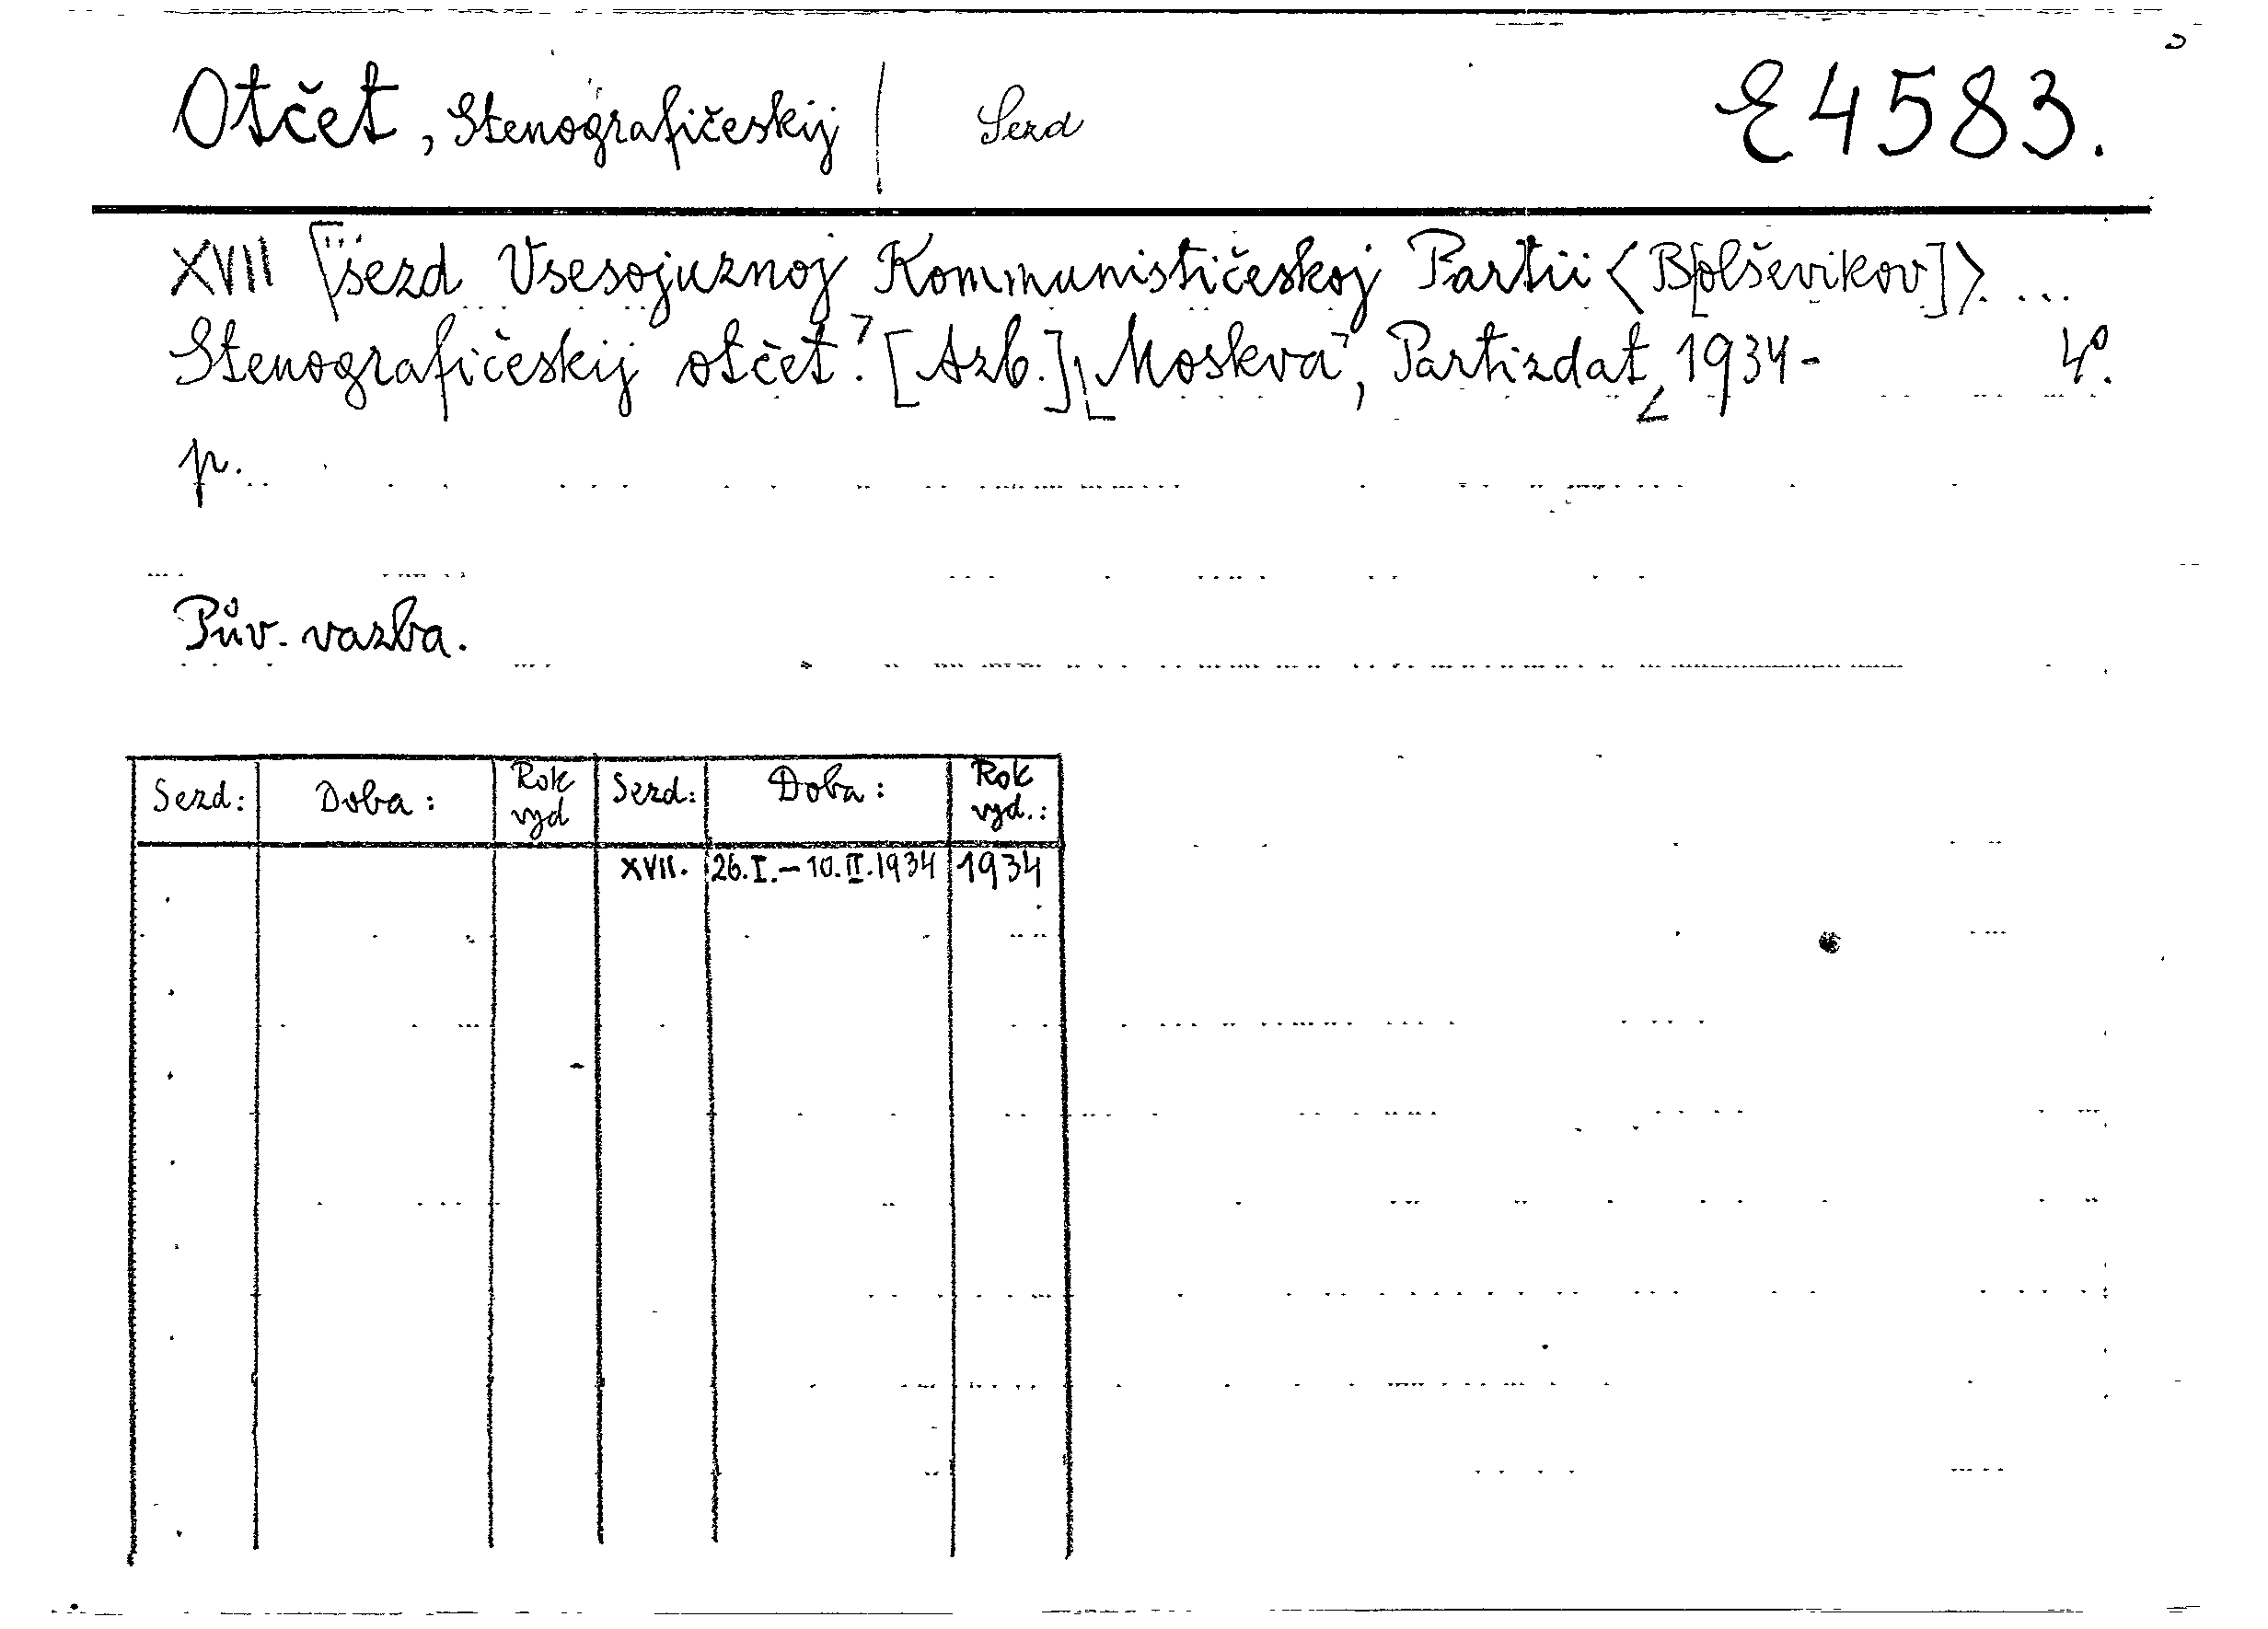 Otčet, Stenografičeskij | Sezd E 4583.
XVII sezd Vsesojuznoj Kommunističeskoj Partii <B[olševikov]>. ...
Stenografičeskij otčet. [Azb.] Moskva, Partizdat, 1934- 4°.
p.
Pův. vazba.
Sezd: Doba: Rok vyd Sezd: Doba: Rok vyd.:
XVII. 26.I.–10.II.1934 1934